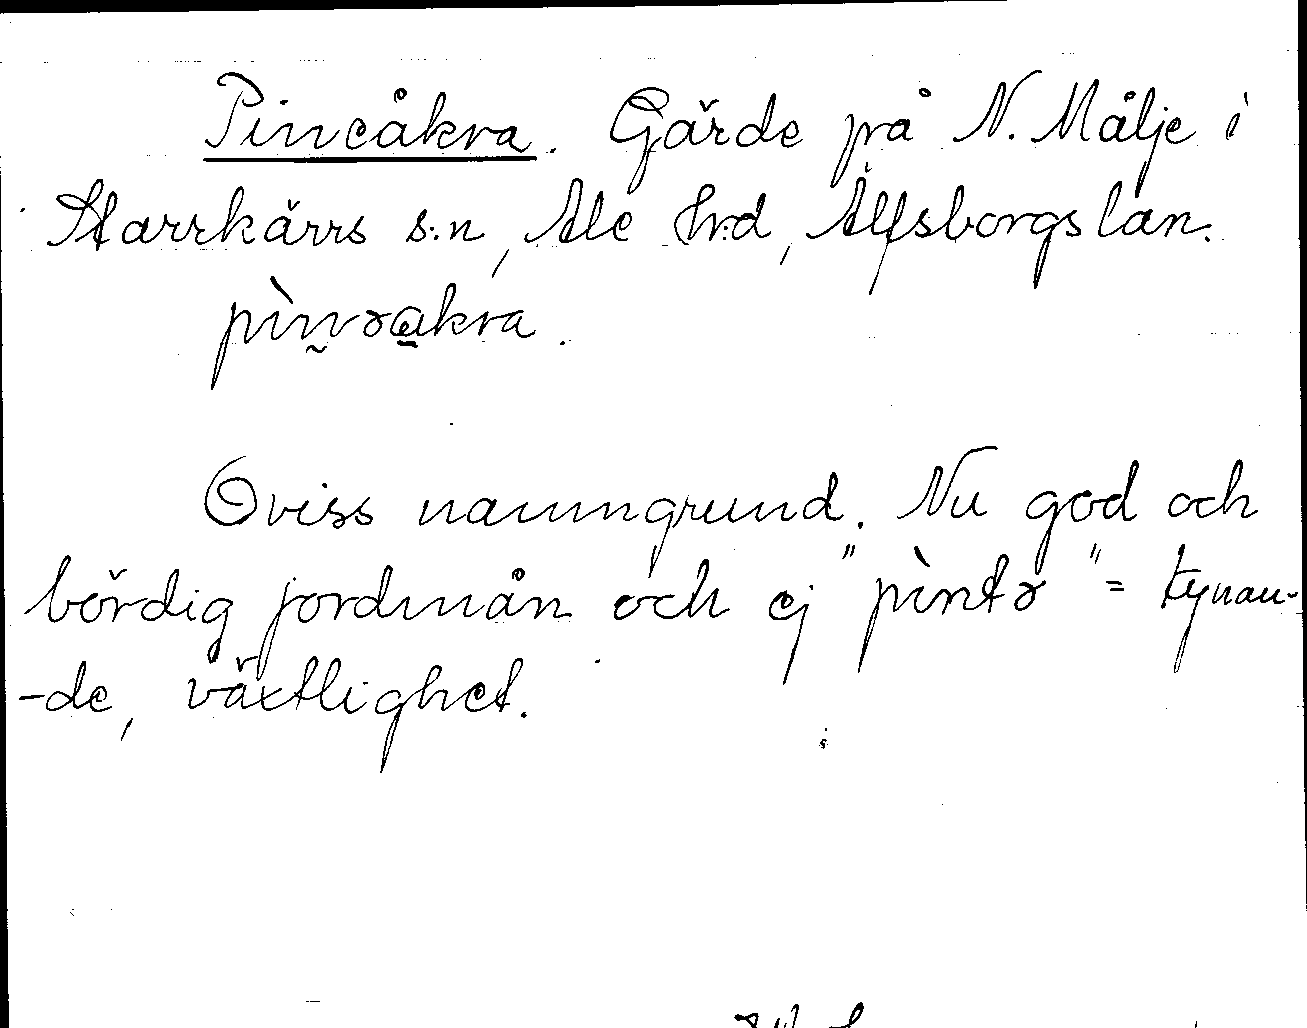 Pineåkra. Gärde på N. Målje i
Starrkärrs s:n, Ale h:d, Älfsborgs län.
pìn̰əa̠kra.
Oviss namngrund. Nu god och
bördig jordmån och ej "pìntə" = tynan-
-de, växtlighet.